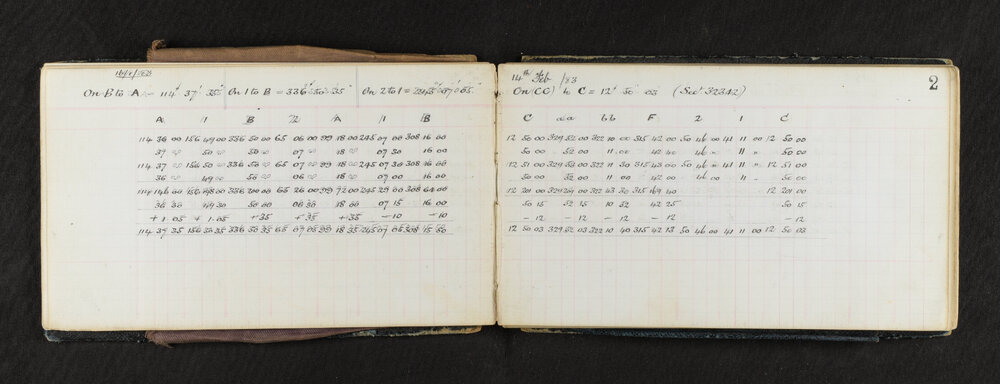 On B to A - 114° 37' 35" On 1 to B = 336° 50' 35" On 2 to 1 = 245° 07' 05"
A 1 B 2 A 1 B
114 36 00 156 49 00 336 50 00 65 06 00 99 18 00 245 07 00 308 16 00
37 50 50 07 18 07 30 16 00
114 37 156 50 336 50 65 07 99 18 245 07 30 308 16 00
36 49 50 06 18 07 00 16 00
114 146 00 156 198 00 336 200 00 65 26 00 99 72 00 245 29 00 308 64 00
36 30 49 30 50 00 06 30 18 00 07 15 16 00
+ 1.05 + 1.05 + 35 + 35 + 35 - 10 - 10
114 37 35 156 50 35 336 50 35 65 07 05 99 18 35 245 07 05 308 15 50
14th Feb /83
2
On (CC) to C = 12° 50' 03 (See 32342)
C aa bb F 2 1 C
12 50 00 329 52 00 322 10 00 315 42 00 50 46 00 41 11 00 12 50 00
50 00 52 00 11 00 42 40 46 41 11 50 00
12 51 00 329 53 00 322 11 30 315 43 00 50 46 41 11 12 51 00
50 00 52 00 11 00 42 00 46 11 50 00
12 201 00 329 209 00 322 43 30 315 169 40 12 201 00
50 15 52 15 10 52 42 25 50 15
- 12 - 12 - 12 - 12 - 12
12 50 03 329 52 03 322 10 40 315 42 13 50 46 00 41 11 00 12 50 03